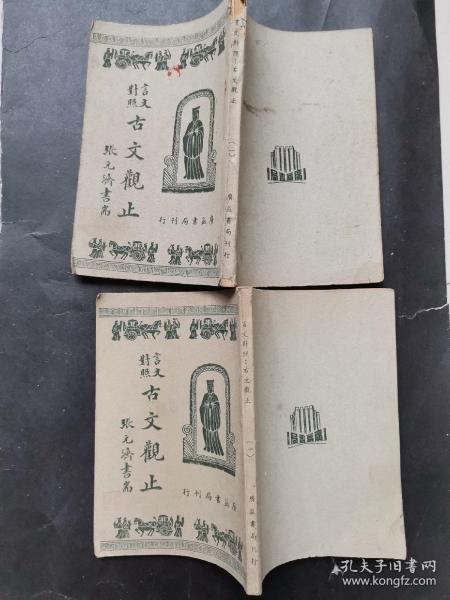 言文
對照
古文觀止
張元濟書耑
廣益書局刊行
言文對照：古文觀止
（二）
廣益書局刊行
廣益書局
言文
對照
古文觀止
張元濟書耑
廣益書局刊行
言文對照：古文觀止
（一）
廣益書局刊行
廣益書局
孔夫子旧书网
www.kongfz.com